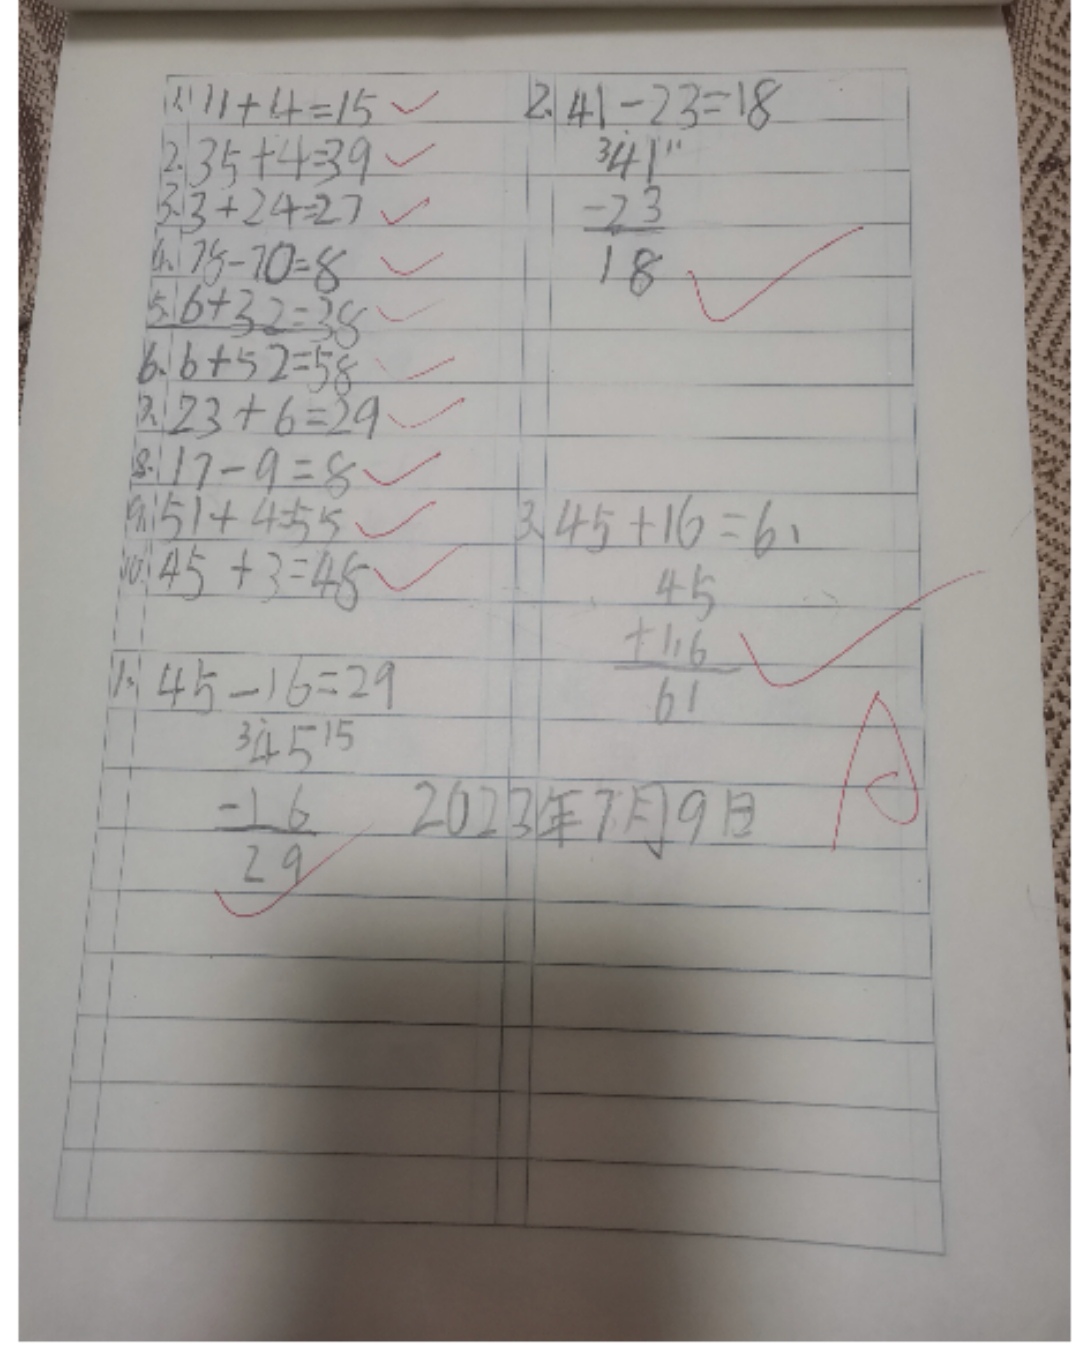 1. 11+4=15
2. 35+4=39
3. 3+24=27
4. 78-70=8
5. 6+32=38
6. 6+52=58
7. 23+6=29
8. 17-9=8
9. 51+4=55
10. 45+3=48
1. 45-16=29
3 45 15
-16
29
2. 41-23=18
3 41 11
-23
18
3. 45+16=61
45
+116
61
2023年7月9日
A